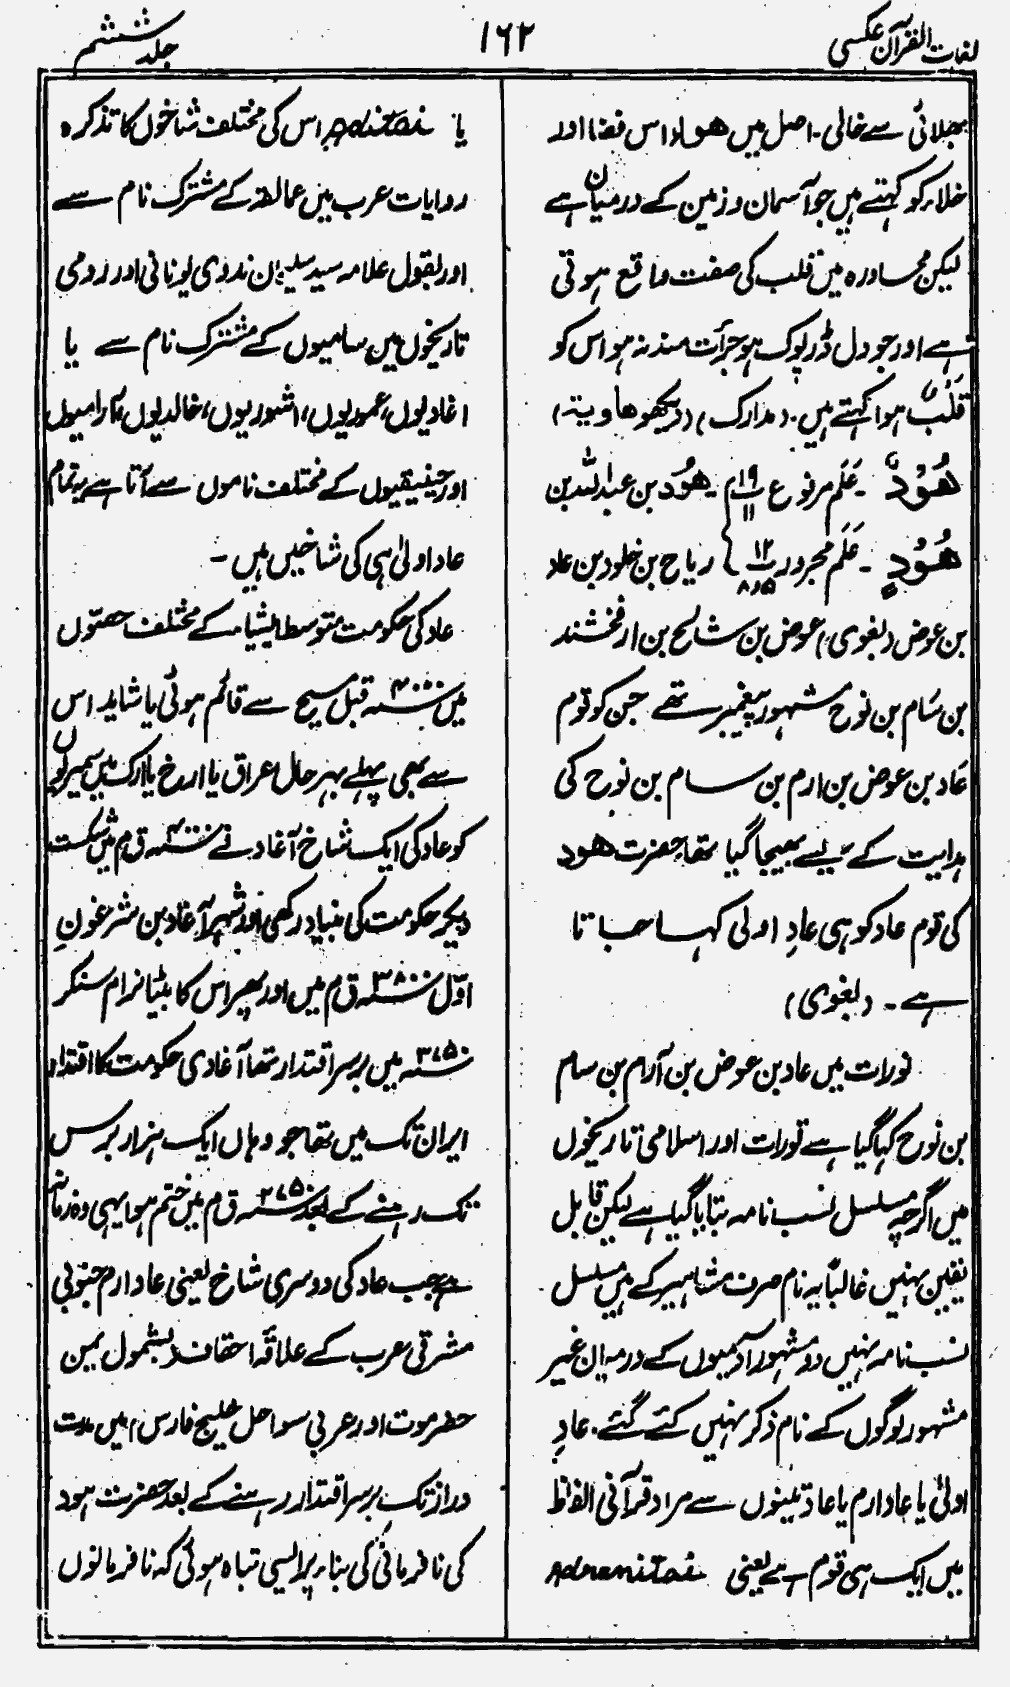 لغات القرآن عکسی
۱۶۲
جلد ششم
بھلائی سے خالی۔ اصل میں ھواء اس فضا اور
خلاء کو کہتے ہیں جو آسمان و زمین کے درمیان ہے
لیکن محاورہ میں قلب کی صفت واقع ہوتی
ہے اور جو دل ڈرپوک ہو جرأت مند نہ ہو اس کو
قَلْبٌ ہوا کہتے ہیں۔ (مدارک) (دیکھو ھاویۃ)
ھُوْدٌ ۔ عَلَم مرفوع ۱۹ ۱۱ ھُوْد بن عبداللہ بن
ھُوْدٍ ۔ عَلَم مجرور ۱۲ ۵ و ۸ ریاح بن خلود بن عاد
بن عوض (بغوی) عوض بن شالح بن ارفخشند
بن سَام بن نوح مشہور پیغمبر تھے جن کو قوم
عَاد بن عوض بن ارم بن سام بن نوح کی
ہدایت کے لیے بھیجا گیا تھا۔ حضرت ھود
کی قوم عاد کو ہی عادِ اولی کہا جاتا
ہے۔ (بغوی)
تورات میں عاد بن عوض بن آرام بن سام
بن نوح کہا گیا ہے تورات اور اسلامی تاریخوں
میں اگرچہ مسلسل نسب نامہ بتایا گیا ہے لیکن قابل
یقین نہیں غالباً یہ نام صرف مشاہیر کے ہیں مسلسل
نسب نامہ نہیں دو مشہور آدمیوں کے درمیان غیر
مشہور لوگوں کے نام ذکر نہیں کئے گئے۔ عادِ
اولیٰ یا عاد ارم یا عاد تینوں سے مراد قرآنی الفاظ
میں ایک ہی قوم ہے یعنی Adramitai
یا Aditai۔ اس کی مختلف شاخوں کا تذکرہ
روایات عرب میں عمالقہ کے مشترک نام سے
اور بقول علامہ سید سلیمان ندوی یونانی اور رومی
تاریخوں میں سامیوں کے مشترک نام سے یا
اغادیوں، عموریوں، اشوریوں، خالدیوں، آرامیوں
اور حینیقیوں کے مختلف ناموں سے آتا ہے یہ تمام
عاد اولیٰ ہی کی شاخیں ہیں۔
عاد کی حکومت متوسط ایشیاء کے مختلف حصّوں
میں ۴۰۰۰ سنہ قبل مسیح سے قائم ہوئی یا شاید اس
سے بھی پہلے بہر حال عراق یا اردخ یا ارک میں سمیریوں
کو عاد کی ایک شاخ آغاد نے ۴۰۰۰ سنہ ق م میں شکست
دیکر حکومت کی بنیاد رکھی اور شہر آغاد بن شرغون
اوّل ۳۸۰۰ سنہ ق م میں اور پھر اس کا بیٹا نرام سنکر
۳۷۵۰ سنہ میں برسر اقتدار تھا آغادی حکومت کا اقتدار
ایران تک میں تھا جو وہاں ایک ہزار برس
تک رہنے کے بعد ۲۷۵۰ سنہ ق م میں ختم ہوا یہی وہ زمانہ
ہے جب عاد کی دوسری شاخ یعنی عاد ارم جنوبی
مشرقی عرب کے علاقہ احقاف بشمول یمن
حضرموت اور عربی سواحل خلیج فارس میں مدت
دراز تک برسر اقتدار رہنے کے بعد حضرت ہود
کی نافرمانی کی بناء پر ایسی تباہ ہوئی کہ نافرمانوں